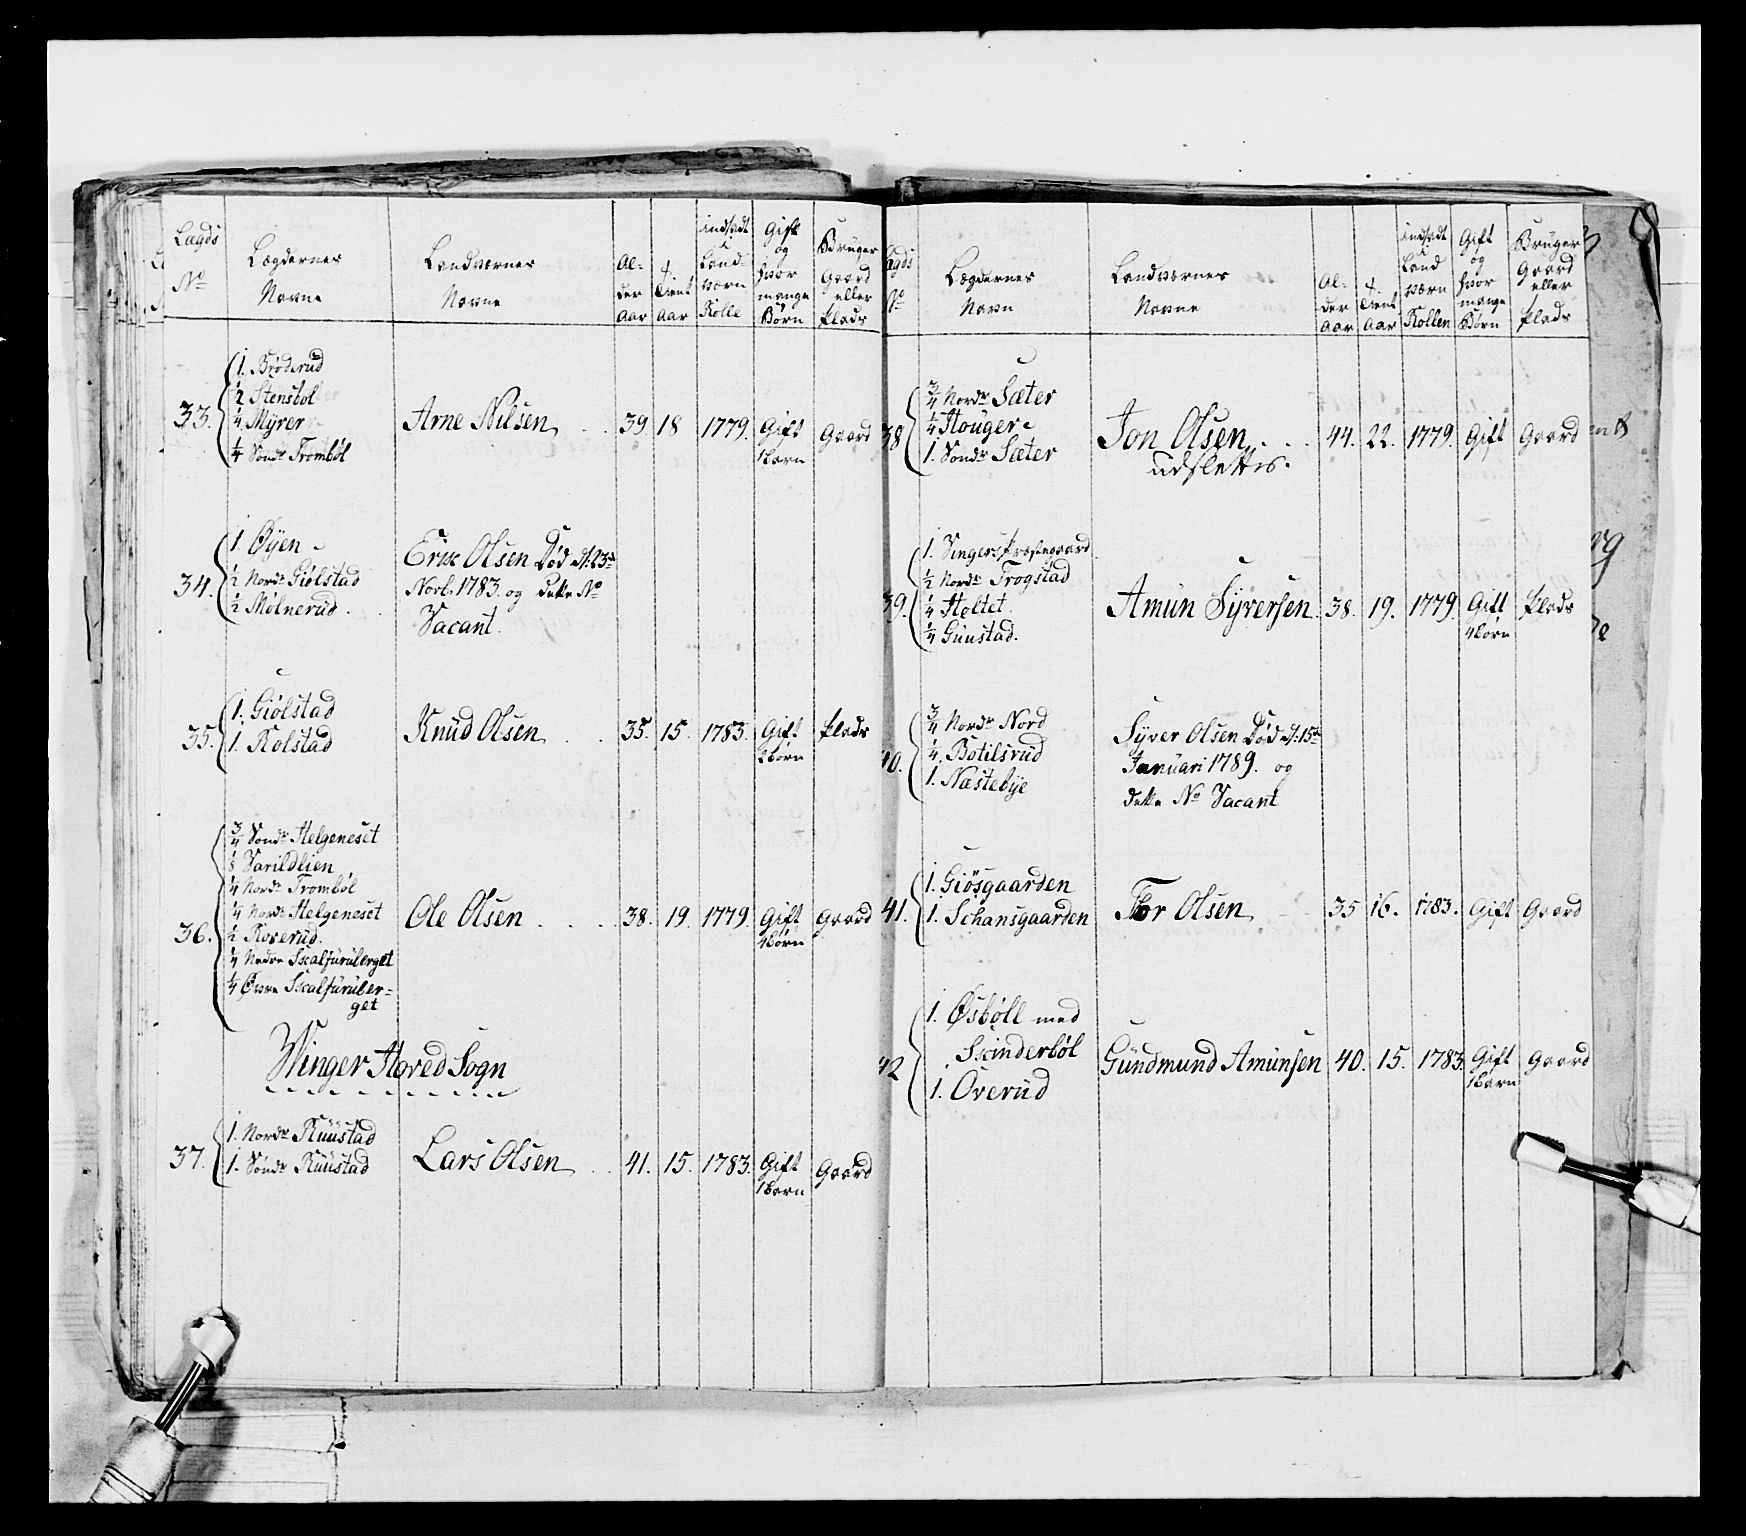 Lægds No
Lægdernes Navne
Landværnes Navne
Al- der Aar
tient Aar
indsadt i Land- værn Rolle
Gift og hvor mange Børn
Bruger Gaard eller Plads
33.
1. Brøderud
1/2 Stensbøl
1/4 Myrer
1/4 Sondr Trombøl
Arne Nilsen 39 18 1779. Gift 1 Barn Gaard
34.
1. Øyen
1/2 Nordr Giølstad
1/2 Mølnerud.
Erik Olsen Død d. 23de
Novb. 1783. og dette No
Vacant.
35.
1. Giølstad
1. Kolstad
Knud Olsen 35. 15. 1783. Gift 2 Børn Plads
36.
3/4 Sondr Helgeneset
1/8 Varildlien
1/4 Nordr Trombøl
1/4 Nordr Helgeneset
1/2 Roverud.
1/4 Nedre Skalfuruberget
1/4 Øvre Skalfuruber=
get
Ole Olsen 38. 19. 1779. Gift 4 Børn Gaard
Winger Hoved Sogn
37.
1. Nordr Ruustad
1. Søndr Ruustad
Lars Olsen 41. 15. 1783. Gift 1 Barn Gaard
Lægds No
Lægdernes Navn
Landværnes Navne
Al- der Aar
tient Aar
indsadt i Land værn Rollen
Gift og hvor mange Børn
Bruger Gaard eller Plads
38
3/4 Nordr Sæter
1/4 Houger
1. Sondr Sæter
Jon Olsen 44. 22. 1779. Gift Gaard
udslettes.
39.
1. Vingers Præstegaard
1/2 Nordr Trogstad
1/4 Holtet.
1/4 Guustad.
Amun Syversen 38. 19. 1779. Gift 4 Børn Plads
40.
3/4 Nordr Nord
1/4 Botilsrud
1. Næstebye
Syver Olsen Død d. 15de
Januari 1789. og
dette No Vacant
41.
1. Giøsgaarden
1. Schansgaarden
Tor Olsen 35 16. 1783. Gift Gaard
42
1. Øsbøll med
Skinderbøl
1. Overud
Gundmund Amunsen 40. 15. 1783. Gift 1 Barn Gaard